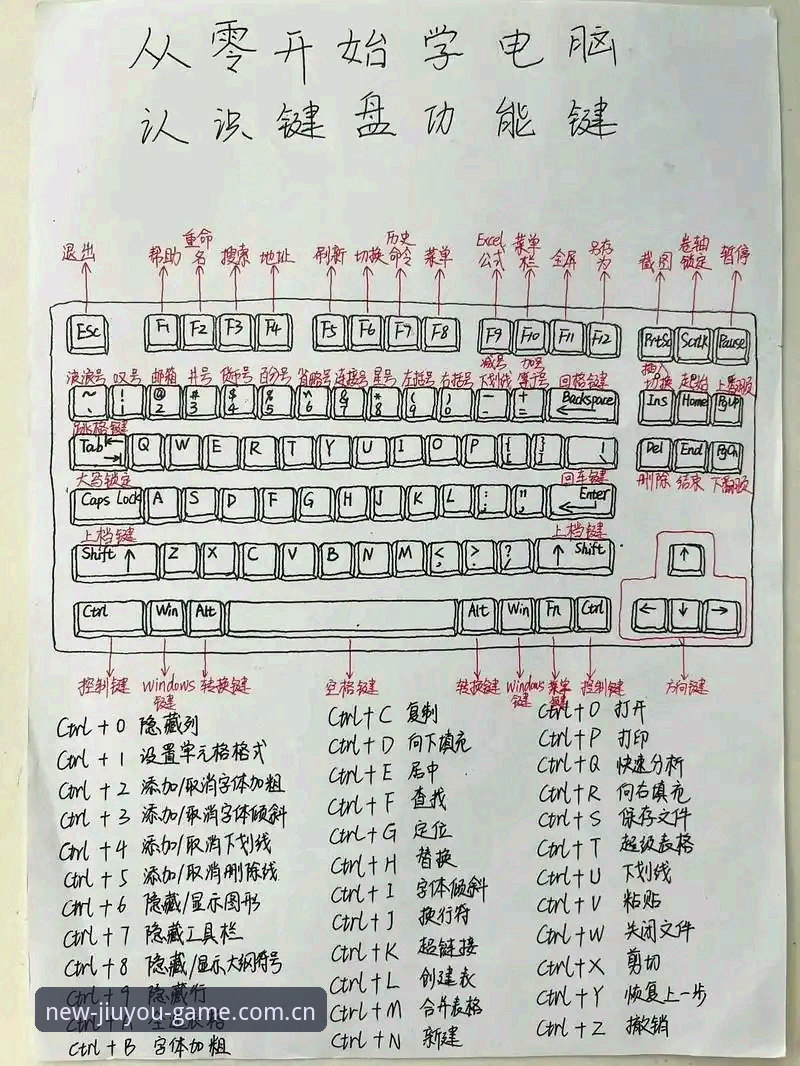 从零开始学电脑
认识键盘功能键
退出 帮助 重命名 搜索 地址 刷新 切换 历史命令 菜单 Excel公式 菜单栏 全屏 另存为 截图 卷轴锁定 暂停
Esc F1 F2 F3 F4 F5 F6 F7 F8 F9 F10 F11 F12 PrtSc ScrLK Pause
波浪号 叹号 邮箱 井号 货币号 百分号 省略号 连接号 星号 左括号 右括号 减号下划线 加号等于号 回格键 插入切换 起始 上翻页
~ ` ! 1 @ 2 # 3 $ 4 % 5 ^ 6 & 7 * 8 ( 9 ) 0 - - + = Backspace Ins Home PgUp
跳格键
Tab Q W E R T Y U I O P { [ } ] | \ Del End PgDn
大写锁定 回车键 删除 结束 下翻页
Caps Lock A S D F G H J K L : ; " , Enter
上档键 上档键
Shift ↑ Z X C V B N M < , > . ? / ↑ Shift ↑
Ctrl Win Alt Alt Win Fn Ctrl ← ↓ →
控制键 Windows键 转换键 空格键 转换键 Windows键 菜单键 控制键 方向键
Ctrl + 0 隐藏列
Ctrl + 1 设置单元格格式
Ctrl + 2 添加/取消字体加粗
Ctrl + 3 添加/取消字体倾斜
Ctrl + 4 添加/取消下划线
Ctrl + 5 添加/取消删除线
Ctrl + 6 隐藏/显示图形
Ctrl + 7 隐藏工具栏
Ctrl + 8 隐藏/显示大纲符号
Ctrl + 9 隐藏行
Ctrl + B 字体加粗
Ctrl + C 复制
Ctrl + D 向下填充
Ctrl + E 居中
Ctrl + F 查找
Ctrl + G 定位
Ctrl + H 替换
Ctrl + I 字体倾斜
Ctrl + J 换行符
Ctrl + K 超链接
Ctrl + L 创建表
Ctrl + M 合并表格
Ctrl + N 新建
Ctrl + O 打开
Ctrl + P 打印
Ctrl + Q 快速分析
Ctrl + R 向右填充
Ctrl + S 保存文件
Ctrl + T 超级表格
Ctrl + U 下划线
Ctrl + V 粘贴
Ctrl + W 关闭文件
Ctrl + X 剪切
Ctrl + Y 恢复上一步
Ctrl + Z 撤销
new-jiuyou-game.com.cn